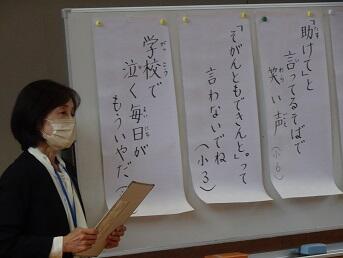 「助けて」と
言ってるそばで
笑い声
(小6)
「そがんともできんと」って
言わないでね
(小3)
学校で
泣く毎日が
もういやだ